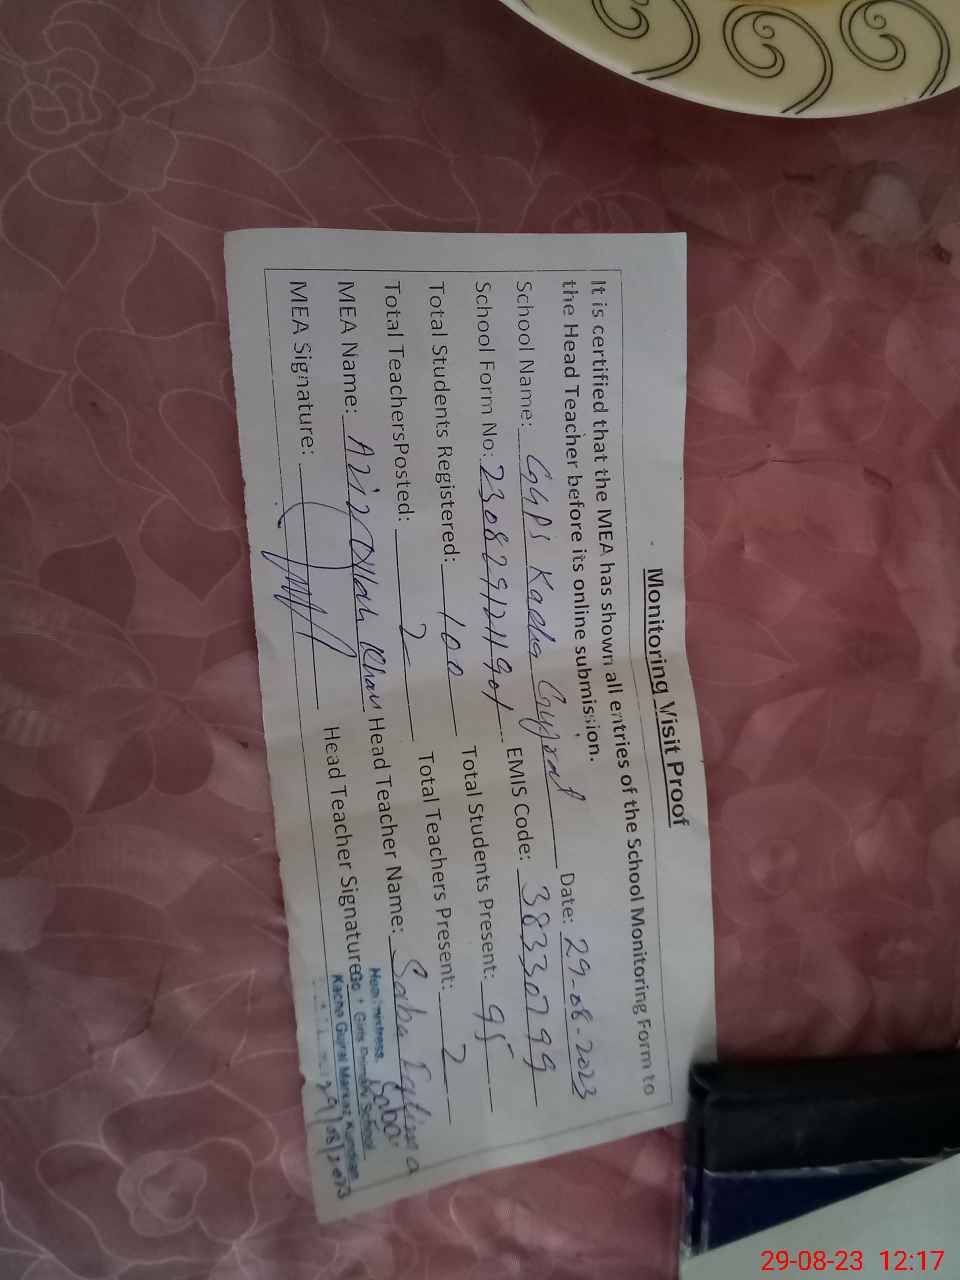 Monitoring Visit Proof
It is certified that the MEA has shown all entries of the School Monitoring Form to
the Head Teacher before its online submission.
School Name: GGPS Kacha Gujrat Date: 29-08-2023
School Form No: EMIS Code: 38330799
Total Students Registered: 100 Total Students Present: 95
Total TeachersPosted: 2 Total Teachers Present: 2
MEA Name: Aziz Ullah Khan Head Teacher Name: Saba
MEA Signature: Head Teacher Signature
Headmistress Saba
Girls Primary School
Kacha Gujrat Markaz Kundian
29/08/2023
29-08-23 12:17